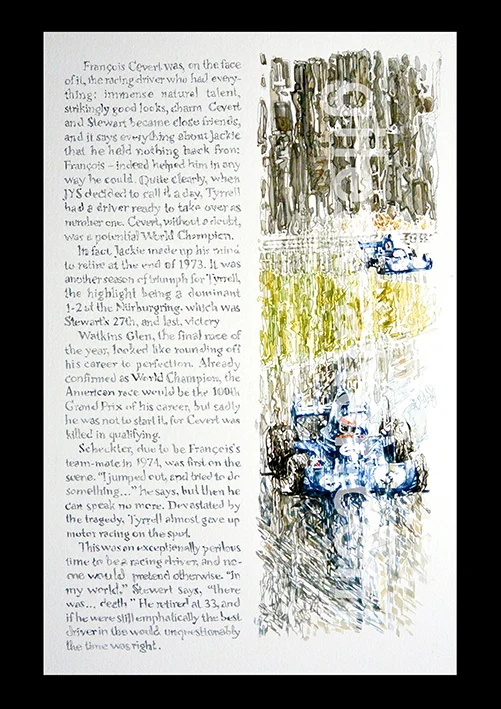 François Cevert was, on the face
of it, the racing driver who had every-
thing: immense natural talent,
strikingly good looks, charm. Cevert
and Stewart became close friends,
and it says everything about Jackie
that he held nothing back from
François – indeed helped him in any
way he could. Quite clearly, when
JYS decided to call it a day, Tyrrell
had a driver ready to take over as
number one. Cevert, without a doubt,
was a potential World Champion.
In fact Jackie made up his mind
to retire at the end of 1973. It was
another season of triumph for Tyrrell,
the highlight being a dominant
1-2 at the Nürburgring, which was
Stewart's 27th, and last, victory
Watkins Glen, the final race of
the year, looked like rounding off
his career to perfection. Already
confirmed as World Champion, the
American race would be the 100th
Grand Prix of his career, but sadly
he was not to start it, for Cevert was
killed in qualifying.
Scheckter, due to be François's
team-mate in 1974, was first on the
scene. "I jumped out, and tried to do
something..." he says, but then he
can speak no more. Devastated by
the tragedy, Tyrrell almost gave up
motor racing on the spot.
This was an exceptionally perilous
time to be a racing driver, and no-
one would pretend otherwise. "In
my world," Stewart says, "there
was... death." He retired at 33, and
if he were still emphatically the best
driver in the world, unquestionably
the time was right.